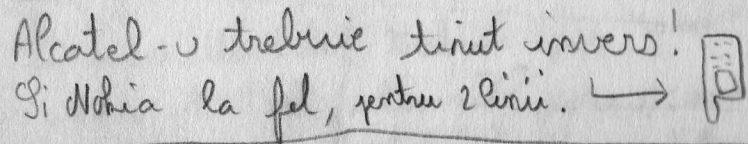 Alcatel-u trebuie tinut invers!
Si Nokia la fel, pentru 2 linii.